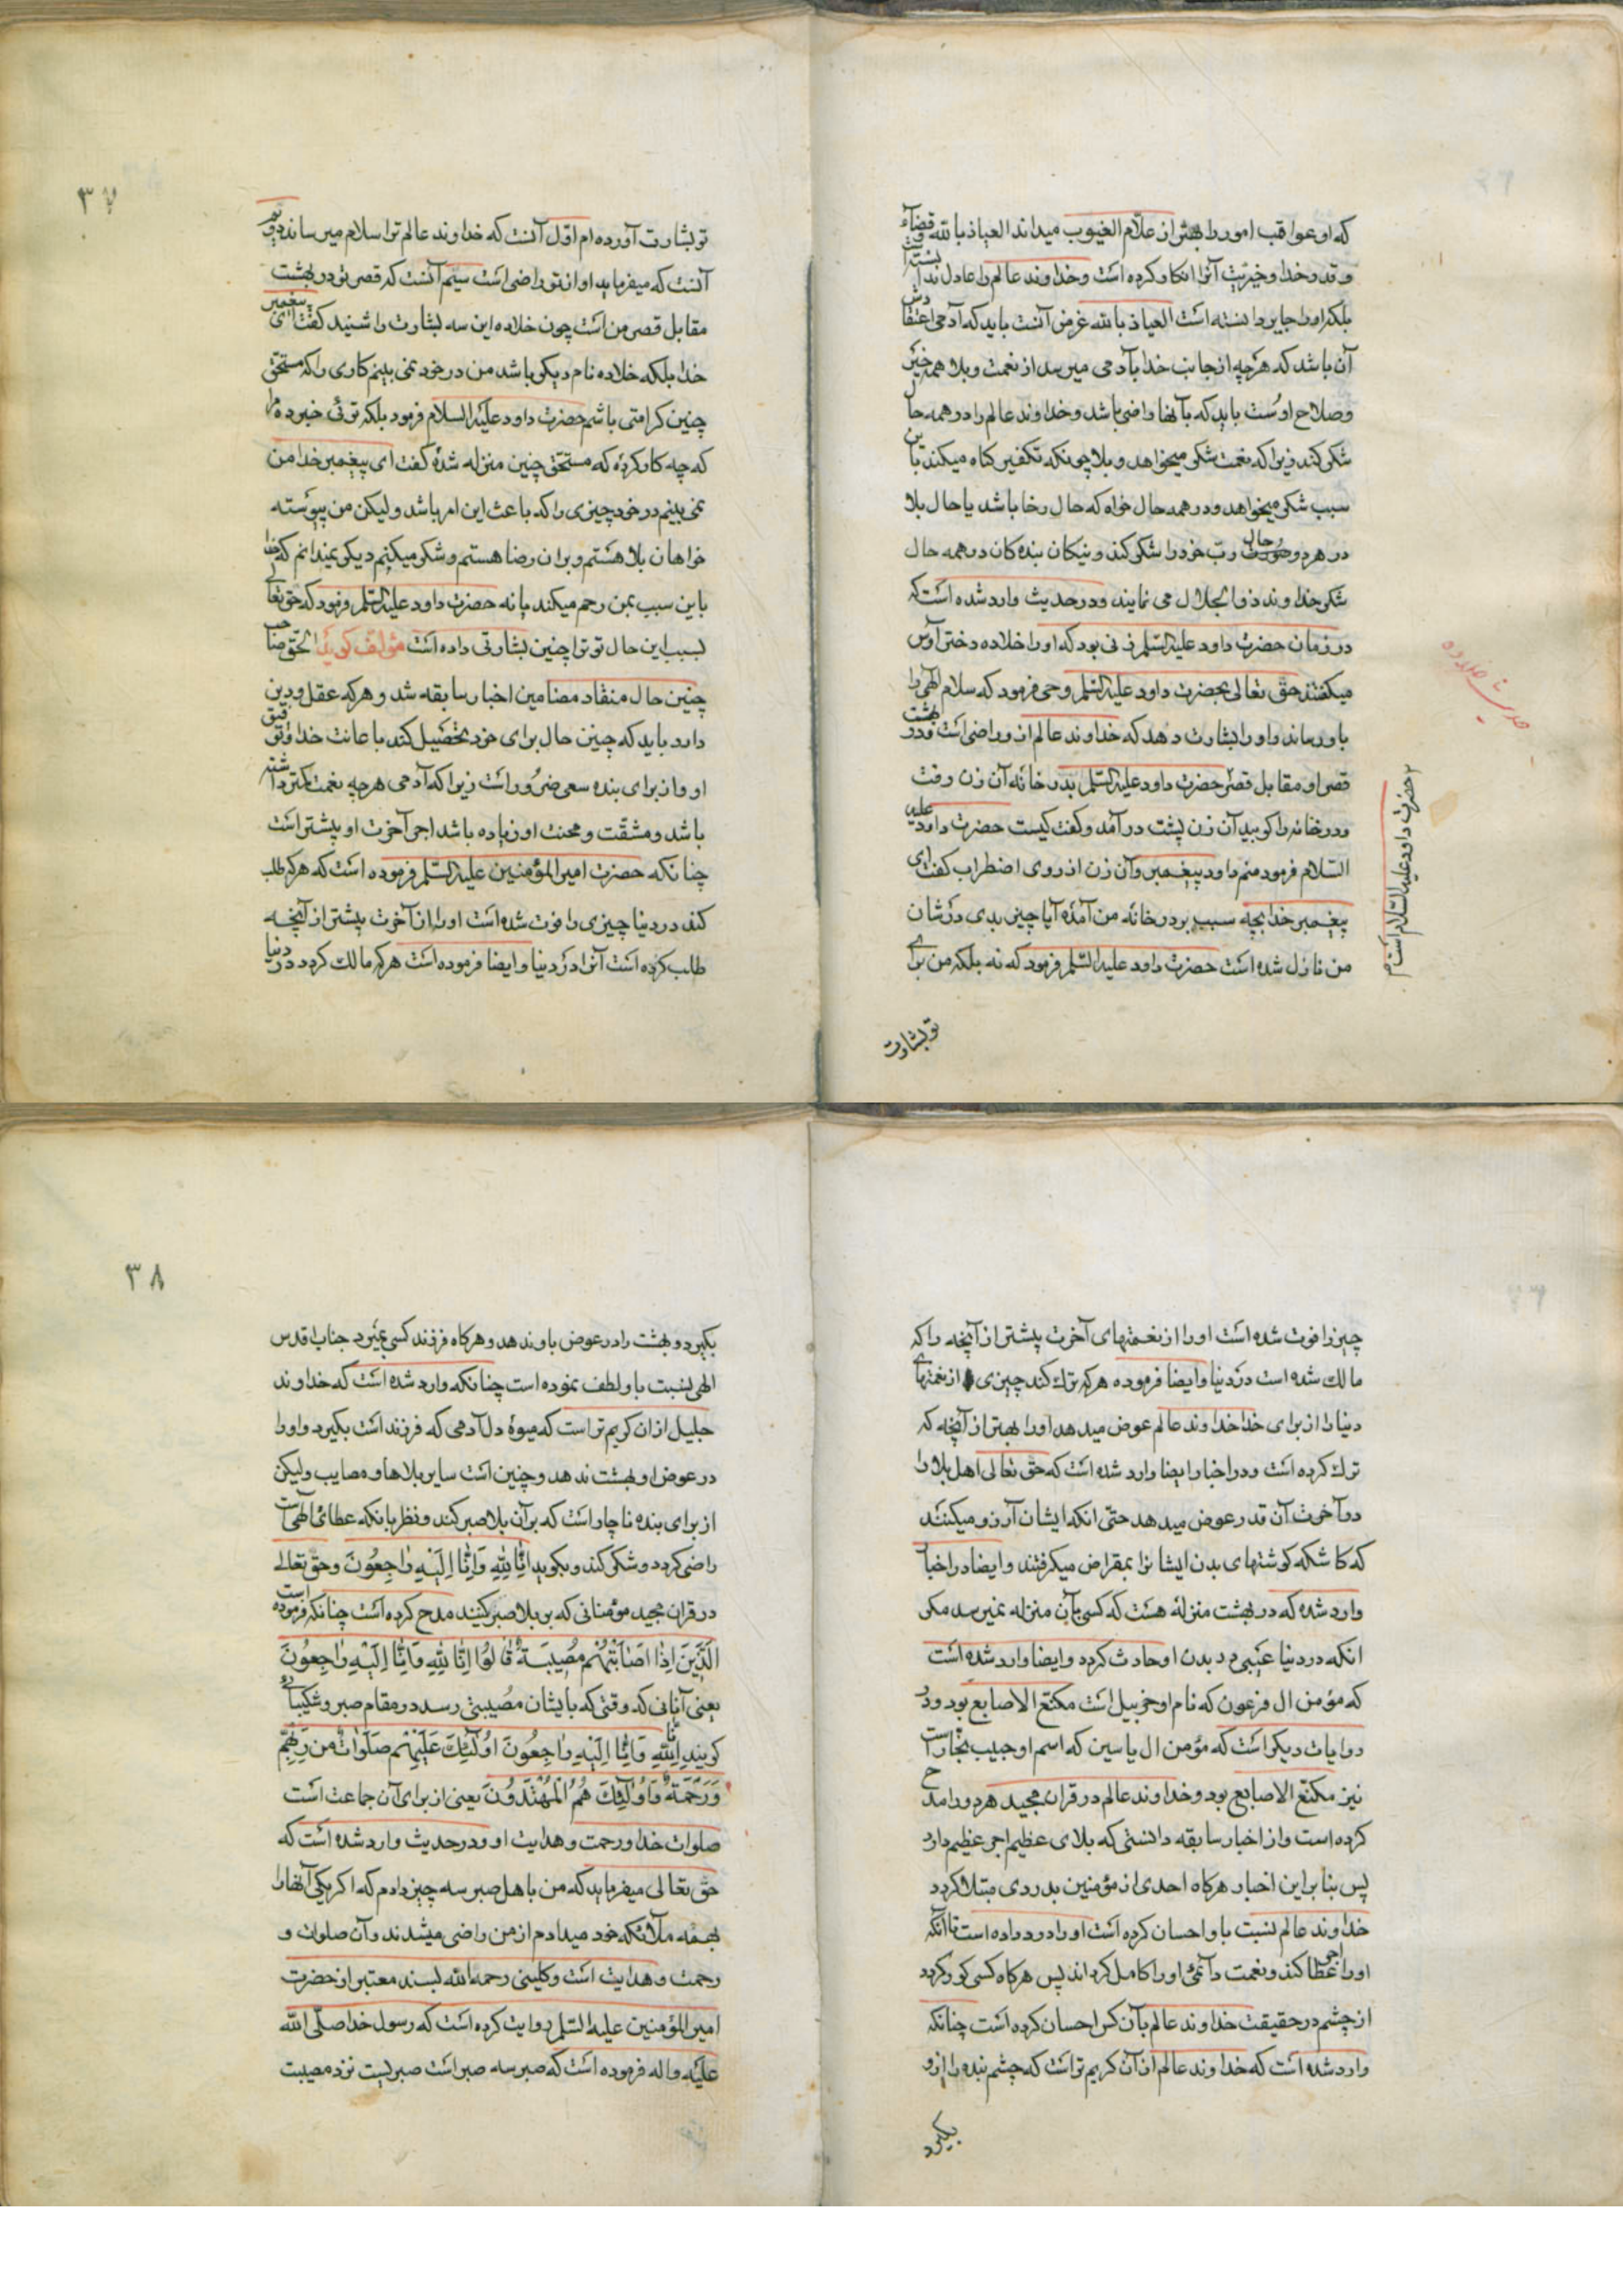 که او عواقب امور را بهتر از علّام الغیوب میداند العیاذ بالله و قضاء
و قدر خدا و خیریت آنرا انکار کرده است و خداوند عالم را عادل ندانسته است
بلکه او را جایر دانسته است العیاذ بالله غرض آنست باید که آدمی اعتقادش
آن باشد که هرچه از جانب خدا بآدمی میرسد از نعمت و بلا همه خیر
و صلاح اوست باید که بآنها راضی باشد و خداوند عالم را در همه حال
شکر کند زیرا که نعمت شکر میخواهد و بلا چونکه تکفیر کناه میکند باین
سبب شکر میخواهد و در همه حال خواه که حال رخا باشد یا حال بلا
در هر دو حال ربّ خود را شکر کند و نیکان بنده کان در همه حال
شکر خداوند ذو الجلال می نمایند و در حدیث وارد شده است که
در زمان حضرت داود علیه السّلم زنی بود که او را خلاده دختر اوس
میکفتند حق تعالی بحضرت داود علیه السّلم وحی فرمود که سلام الهی را
باو رساند و او را بشارت دهد که خداوند عالم از و راضی است و در بهشت
قصر او مقابل قصر حضرت داود علیه السّلم بدر خانه آن زن رفت
و در خانه را کوبید آن زن پشت در آمد و کفت کیست حضرت داود علیه
السّلام فرمود منم داود پیغمبر و آن زن از روی اضطراب کفت ای
پیغمبر خدا بچه سبب بر در خانه من آمدۀ آیا چیز بدی در شان
من نازل شده است حضرت داود علیه السّلم فرمود که نه بلکه من برای
تو بشارت
حضرت داود علیه السّلام است م
حدیث خلاده
۳۷
تو بشارت آورده ام اوّل آنست که خداوند عالم ترا سلام میرساند دویم
آنست که میفرماید او از تو راضی است سیّم آنست که قصر تو در بهشت
مقابل قصر من است چون خلاده این سه بشارت را شنید کفت ای پیغمبر
خدا بلکه خلاده نام دیکر باشد من در خود نمی بینم کاری را که مستحق
چنین کرامتی باشم حضرت داود علیه السلام فرمود بلکه توئی خبر ده مرا
که چه کار کردۀ که مستحق چنین منزله شدۀ کفت ای پیغمبر خدا من
نمی بینم در خود چیزی را که باعث این امر باشد و لیکن من پیوسته
خواهان بلا هستم و بر ان رضا هستم و شکر میکنم دیکر نمیدانم که خدا
باین سبب بمن رحم میکند یا نه حضرت داود علیه السّلم فرمود که حق تعالی
بسبب این حال تو ترا چنین بشارتی داده است مؤلف کوید الحق صاحب
چنین حال منقاد مضامین اخبار سابقه شد و هر که عقل و دین
دارد باید که چنین حال برای خود تحصیل کند باعانت خدا و توفیق
او و از برای بنده سعی ضرور است زیرا که آدمی هر چه نعمت کمتر داشته
باشد و مشقّت و محنت او زیاده باشد اجر آخرت او بیشتر است
چنانکه حضرت امیر المؤمنین علیه السّلم فرموده است که هر که طلب
کند در دنیا چیزی را فوت شده است او را از آخرت بیشتر از آنچه
طلب کرده است آنرا در دنیا و ایضا فرموده است هر که مالک کردد در دنیا
چیز را فوت شده است او را از نعمتهای آخرت بیشتر از آنچه را که
مالک شده است در دنیا و ایضا فرموده هر که ترک کند چیزی از نعمتهای
دنیا را از برای خدا خداوند عالم عوض میدهد او را بهتر از آنچه که
ترک کرده است و در اخبار ایضا وارد شده است که حق تعالی اهل بلا را
در آخرت آن قدر عوض میدهد حتّی انکه ایشان آرزو میکنند
که کاشکه کوشتهای بدن ایشانرا بمقراض میکرفتند و ایضا در اخبار
وارد شده که در بهشت منزلۀ هست که کسی بآن منزله نمیرسد مکر
انکه در دنیا عیبی در بدن او حادث کردد و ایضا وارد شده است
که مؤمن ال فرعون که نام او خربیل است مکنّع الاصابع بود و در
روایات دیکر است که مؤمن ال یاسین که اسم او حبیب نجار است
نیز مکنّع الاصابع بود و خداوند عالم در قران مجید هر دو را مدح
کرده است و از اخبار سابقه دانستی که بلای عظیم اجر عظیم دارد
پس بنا بر این اخبار هر کاه احدی از مؤمنین بدردی مبتلا کردد
خداوند عالم نسبت باو احسان کرده است او را درد داده است تا آنکه
او را اجر عطا کند و نعمت دائمی او را کامل کرداند پس هر کاه کسی کور کردد
از چشم در حقیقت خداوند عالم بآن کس احسان کرده است چنانکه
وارد شده است که خداوند عالم از آن کریم تر است که چشم بنده را از و
بکیرد
۳۸
بکیرد و بهشت را در عوض باو ندهد و هر کاه فرزند کسی بمیرد جناب اقدس
الهی نسبت باو لطف نموده است چنانکه وارد شده است که خداوند
جلیل از ان کریم تر است که میوۀ دل آدمی که فرزند است بکیرد و او را
در عوض او بهشت ندهد و چنین است سایر بلاها و مصایب و لیکن
از برای بنده ناچار است که بر آن بلا صبر کند و نظر بانکه عطائ الهی است
راضی کردد و شکر کند و بکوید اِنّا لِلّهِ وَ اِنّا اِلَیْهِ راجِعُونَ و حق تعالی
در قران مجید مؤمنانی که بر بلا صبر کنند مدح کرده است چنانکه فرموده است
الَّذِینَ اِذا اَصابَتْهُمْ مُصِیبَةٌ قالُوا اِنّا لِلّهِ وَ اِنّا اِلَیْهِ راجِعُونَ
یعنی آنانی که وقتی که بایشان مصیبتی رسد در مقام صبر و شکیبائی
کویند اِنّا لِلّهِ وَ اِنّا اِلَیْهِ راجِعُونَ اُولئِکَ عَلَیْهِمْ صَلَواتٌ مِن رَبِّهِمْ
وَ رَحْمَةٌ وَ اُولئِکَ هُمُ الْمُهْتَدُونَ یعنی از برای آن جماعت است
صلوات خدا و رحمت و هدایت او و در حدیث وارد شده است که
حق تعالی میفرماید که من باهل صبر سه چیز دادم که اکر یکی آنها را
بهمه ملائکه خود میدادم از من راضی میشدند و آن صلوات و
رحمت و هدایت است و کلینی رحمه الله بسند معتبر از حضرت
امیر المؤمنین علیه السّلم روایت کرده است که رسول خدا صلّی الله
علیه و اله فرموده است که صبر سه صبر است صبریست نزد مصیبت